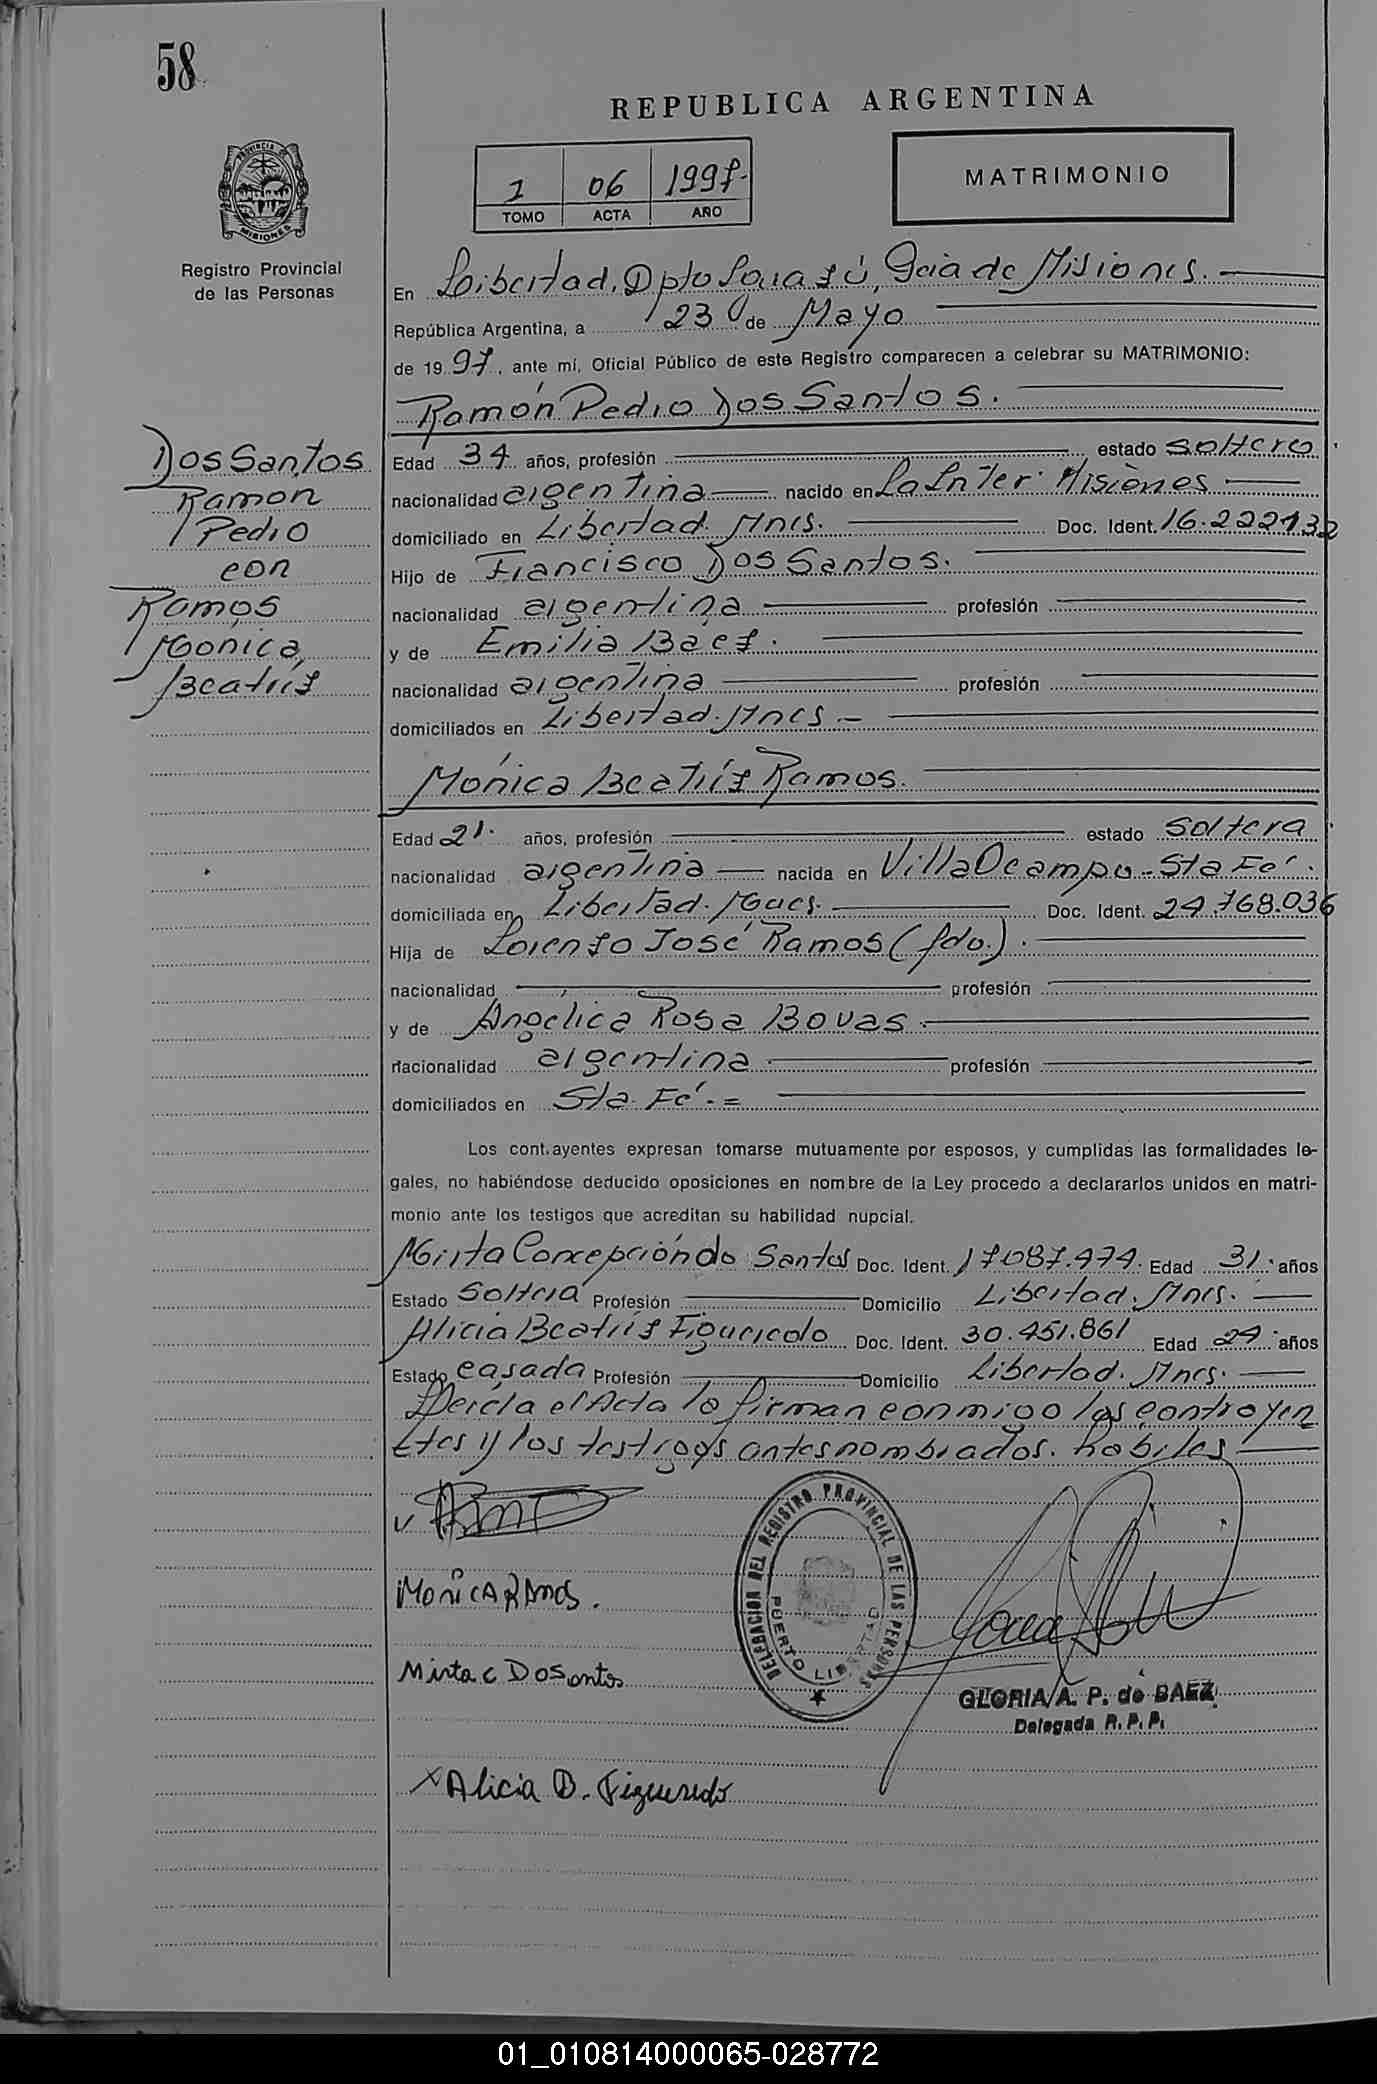 58
REPUBLICA ARGENTINA
1 06 1997-
TOMO ACTA AÑO
MATRIMONIO
PROVINCIA DE MISIONES
Registro Provincial
de las Personas
En Libertad, Dpto Iguazú, Pcia de Misiones.
República Argentina, a 23 de Mayo
de 1997, ante mí, Oficial Público de este Registro comparecen a celebrar su MATRIMONIO:
Ramón Pedro Dos Santos.
Dos Santos
Ramón
Pedro
con
Ramos
Mónica
Beatríz
Edad 34 años, profesión estado soltero.
nacionalidad argentina nacido en Misiones
domiciliado en Libertad. Mnes. Doc. Ident. 16.222132
Hijo de Francisco Dos Santos.
nacionalidad argentina profesión
y de Emilia Báez.
nacionalidad argentina profesión
domiciliados en Libertad. Mnes.-
Mónica Beatríz Ramos.
Edad 21. años, profesión estado soltera.
nacionalidad argentina nacida en Villa Ocampo-Sta Fé.
domiciliada en Libertad. Mnes. Doc. Ident. 24.768.036
Hija de Lorenzo José Ramos (fdo.).
nacionalidad profesión
y de Angélica Rosa Bovas.
nacionalidad argentina profesión
domiciliados en Sta. Fé.=
Los contrayentes expresan tomarse mutuamente por esposos, y cumplidas las formalidades le-
gales, no habiéndose deducido oposiciones en nombre de la Ley procedo a declararlos unidos en matri-
monio ante los testigos que acreditan su habilidad nupcial.
Mirta Concepción do Santos Doc. Ident. 17087.474. Edad 31. años
Estado Soltera Profesión Domicilio Libertad. Mnes.
Alicia Beatríz Figueredo Doc. Ident. 30.451.861 Edad 24 años
Estado casada Profesión Domicilio Libertad. Mnes.
el Acta la firman conmigo los contrayen
tes y los testigos antes nombrados. habiles
MoNiCA RAmos.
Mirta C DoSantos
X Alicia B. Figueredo
DELEGACION DEL REGISTRO PROVINCIAL DE LAS PERSONAS
PUERTO LIBERTAD
GLORIA A. P. de BAEZ
Delegada R. P. P.
01_010814000065-028772